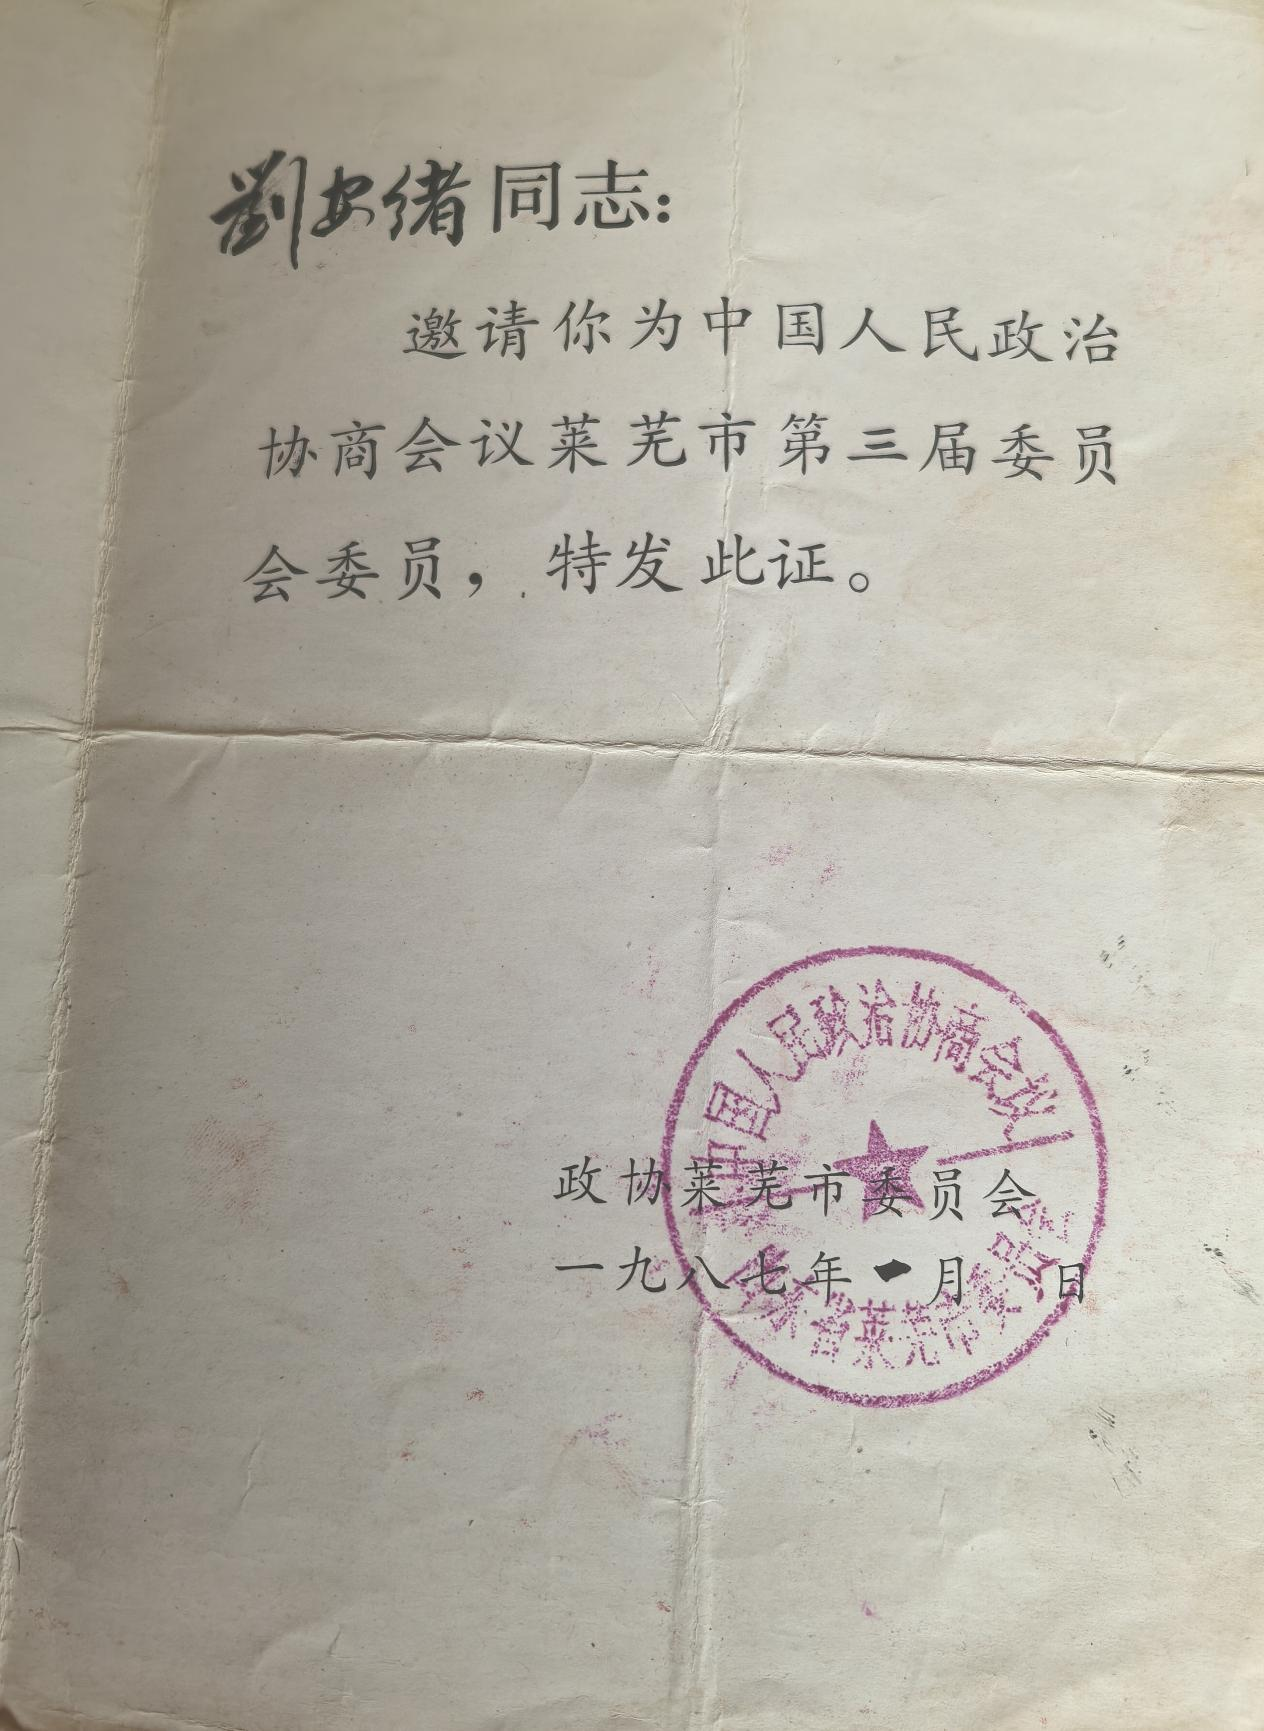 劉安绪同志：
邀请你为中国人民政治
协商会议莱芜市第三届委员
会委员，特发此证。
中国人民政治协商会议
山东省莱芜市委员会
政协莱芜市委员会
一九八七年一月 日